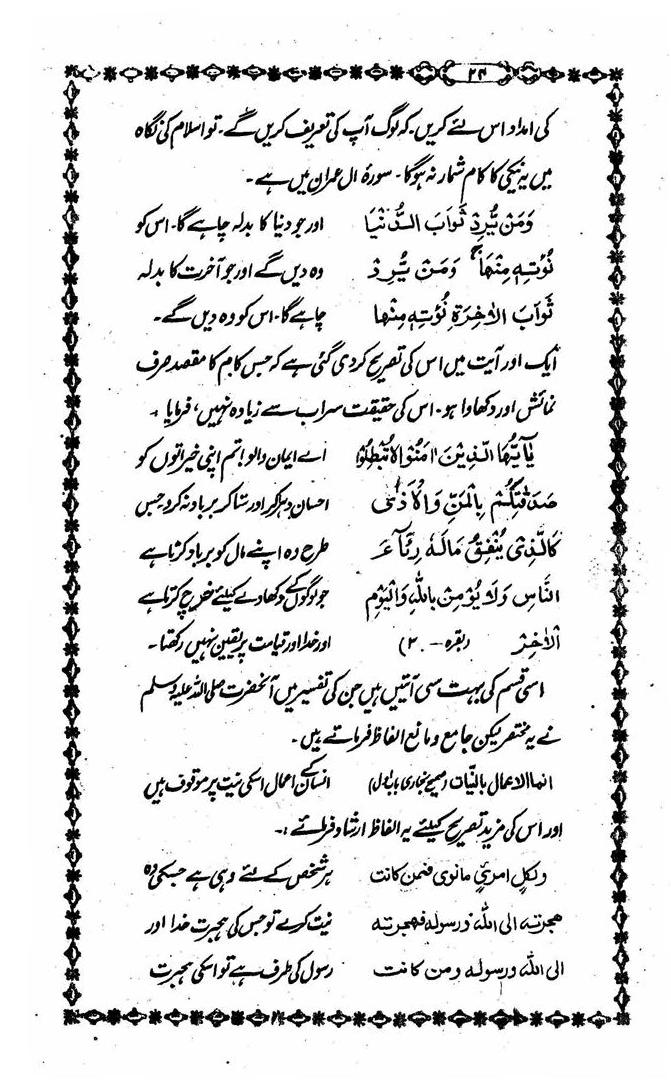 ۲۴
کی امداد اس لئے کریں۔ کہ لوگ آپ کی تعریف کریں گے۔ تو اسلام کی نگاہ
میں یہ نیکی کا کام شمار نہ ہوگا۔ سورۂ ال عمران میں ہے۔
وَمَن یُّرِدْ ثَوَابَ الدُّنْیَا اور جو دنیا کا بدلہ چاہے گا۔ اس کو
نُؤْتِهٖ مِنْهَا ۚ وَمَنْ یُّرِدْ وہ دیں گے اور جو آخرت کا بدلہ
ثَوَابَ الْاٰخِرَةِ نُؤْتِهٖ مِنْهَا چاہے گا۔ اس کو وہ دیں گے۔
ایک اور آیت میں اس کی تصریح کردی گئی ہے کہ جس کام کا مقصد صرف
نمائش اور دکھاوا ہو۔ اس کی حقیقت سراب سے زیادہ نہیں، فرمایا :۔
یٰۤاَیُّهَا الَّذِیْنَ اٰمَنُوْا لَا تُبْطِلُوْا اے ایمان والو! تم اپنی خیراتوں کو
صَدَقٰتِكُمْ بِالْمَنِّ وَالْاَذٰى احسان دہر کر اور ستا کر برباد نہ کرو جس
كَالَّذِیْ یُنْفِقُ مَالَهٗ رِئَآءَ طرح وہ اپنے مال کو برباد کرتا ہے
النَّاسِ وَلَا یُؤْمِنُ بِاللّٰهِ وَالْیَوْمِ جو لوگوں کے دکھاوے کیلئے خرچ کرتا ہے
الْاٰخِرِ (بقرہ – ۲۰) اور خدا اور قیامت پر یقین نہیں رکھتا۔
اسی قسم کی بہت سی آئتیں ہیں جن کی تفسیر میں آنحضرت صلی اللہ علیہ وسلم
نے یہ مختصر لیکن جامع و مانع الفاظ فرماتے ہیں۔
انما الاعمال بالنیّات (صحیح بخاری باب اول) انسان کے اعمال اسکی نیت پر موقوف ہیں
اور اس کی مزید تصریح کیلئے یہ الفاظ ارشاد فرمائے :۔
ولکل امرئٍ مانوی فمن کانت ہر شخص کے لئے وہی ہے جسکی وہ
هجرته الی اللہ ورسوله فهجرته نیت کرے تو جس کی ہجرت خدا اور
الی اللہ ورسوله ومن کانت رسول کی طرف ہے تو اسکی ہجرت